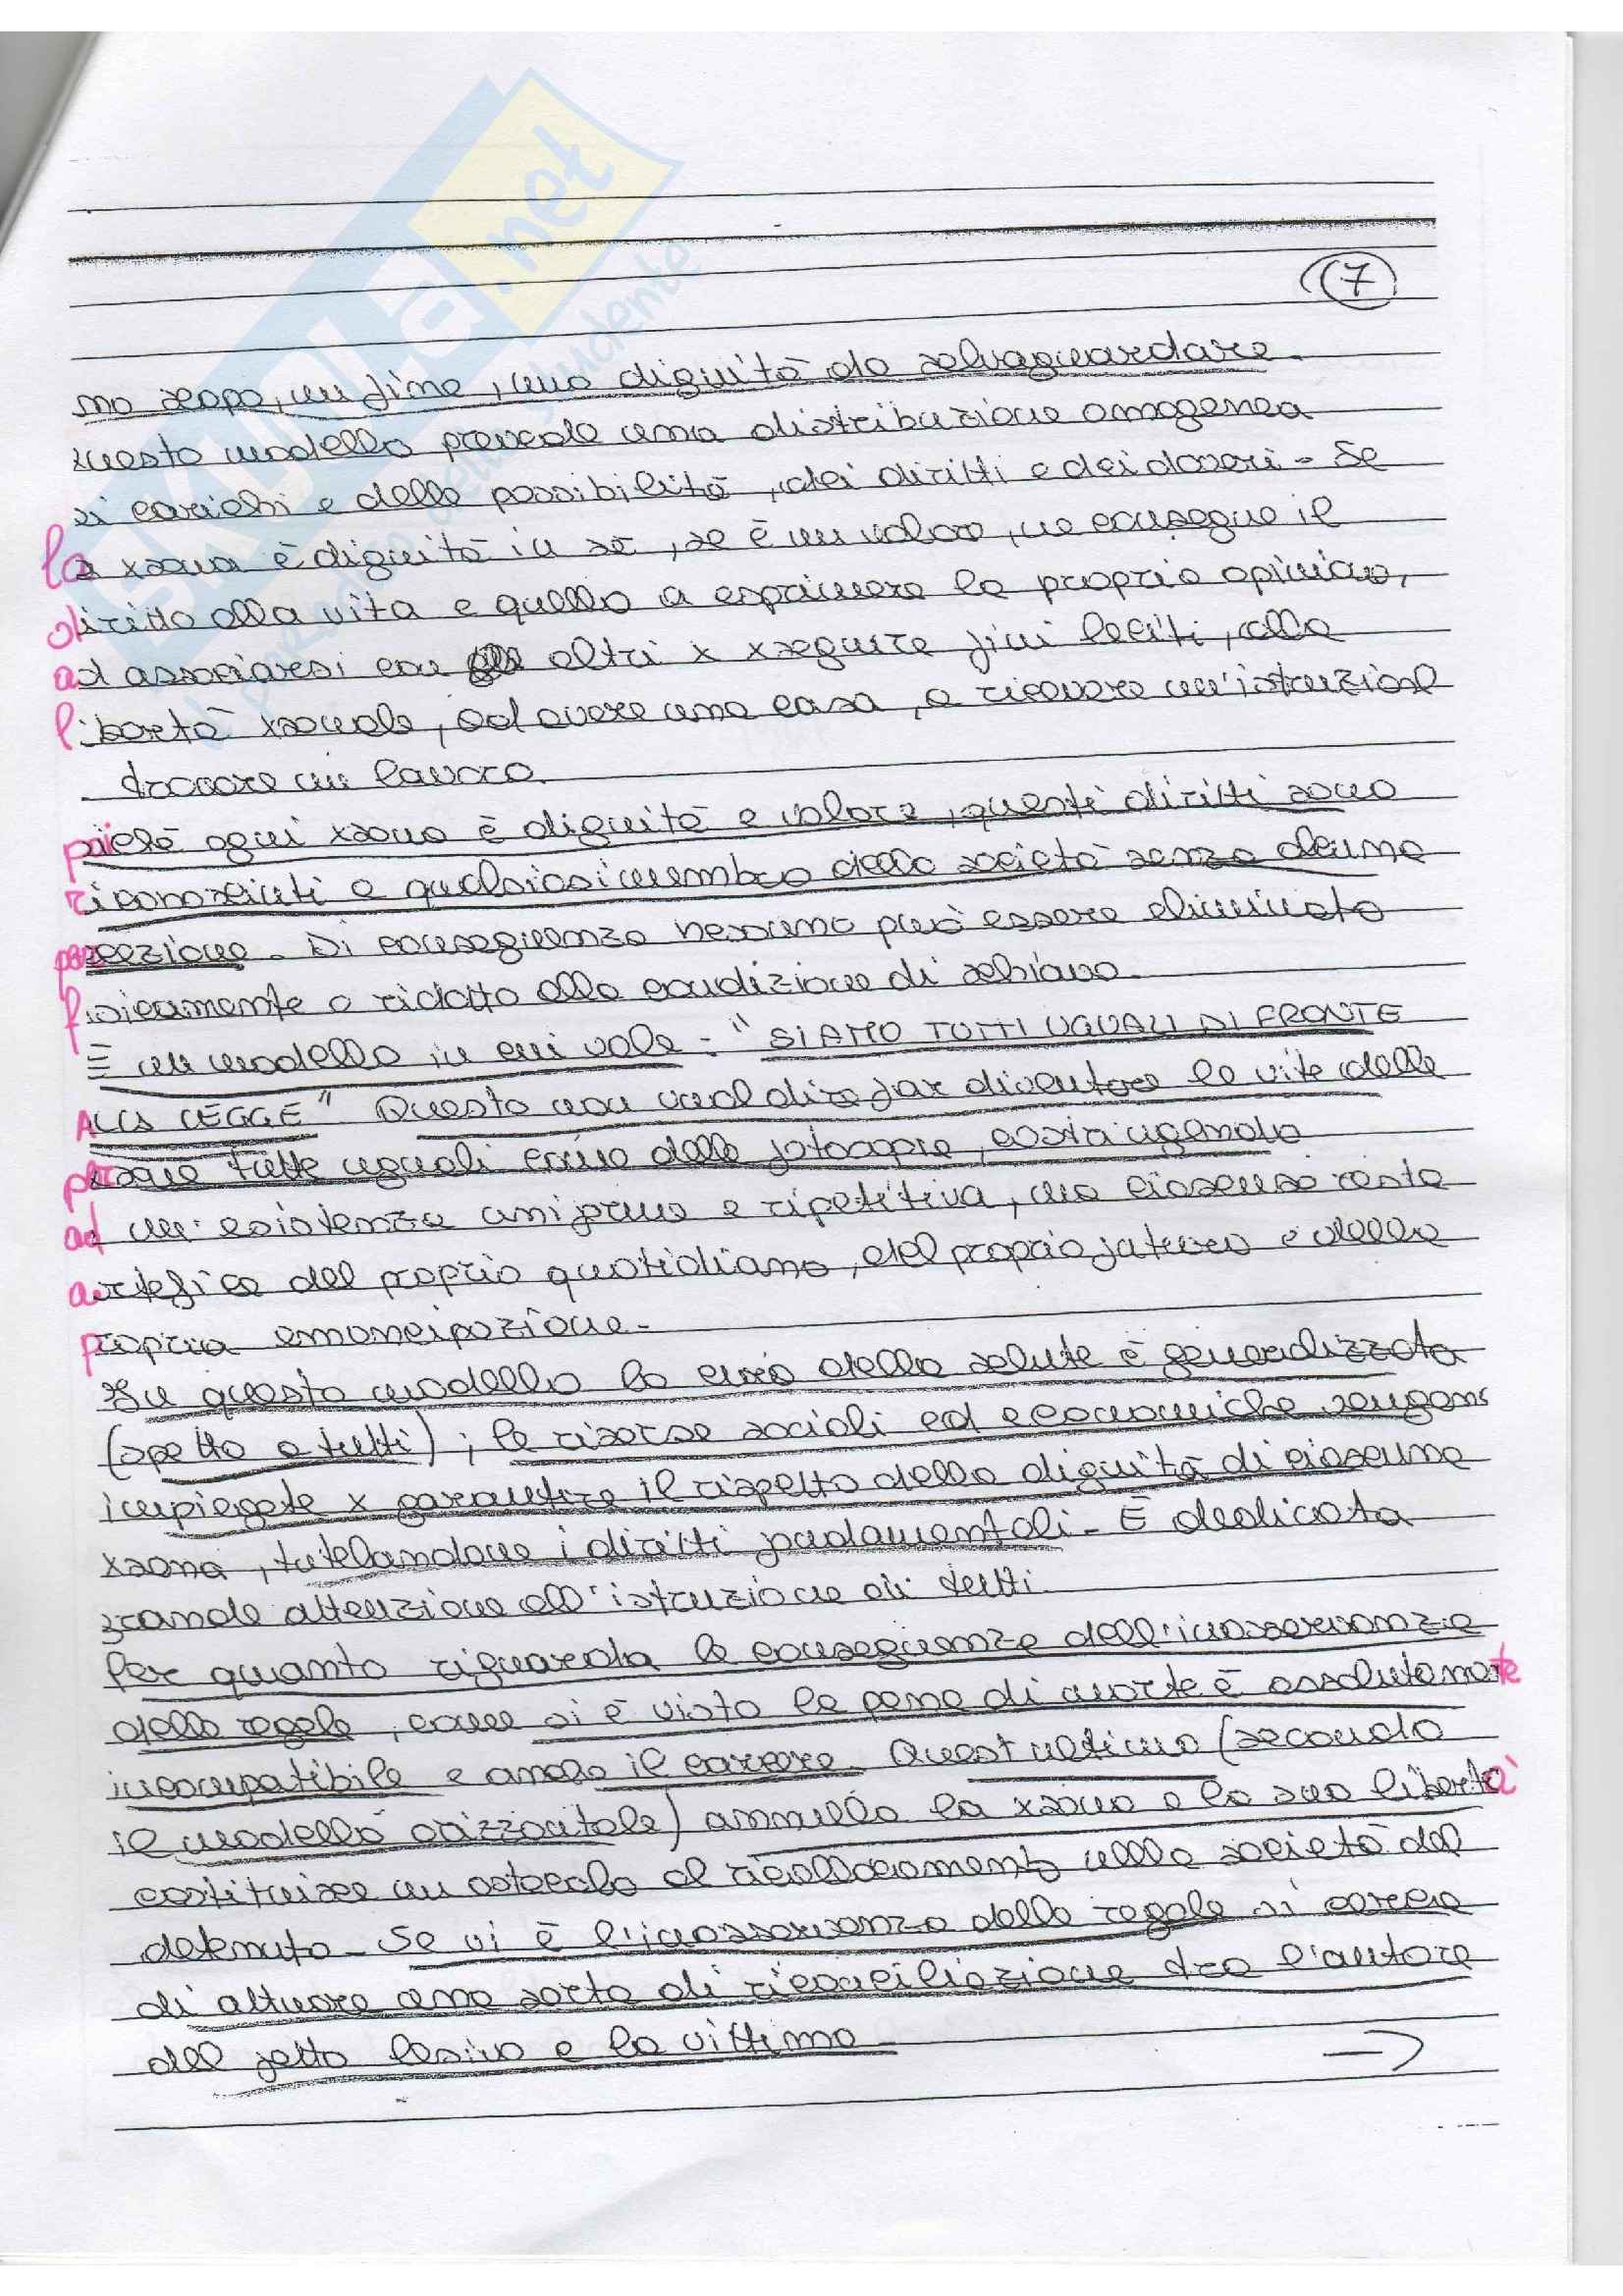 SKUOLA.net
(7)
no scopo, un fine, una dignità da salvaguardare.
uesto modello prevede una distribuzione omogenea
ei carichi e delle possibilità, dei diritti e dei doveri - Se
la xsona è dignità in sé, se è un valore, ne consegue il
diritto alla vita e quello a esprimere la propria opinione,
ad associarsi con altri x xseguire fini leciti, alla
libertà xsonale, ad avere una casa, a ricevere un'istruzione
trovare un lavoro.
poiché ogni xsona è dignità e valore, questi diritti sono
riconosciuti a qualsiasi membro della società senza alcuna
eccezione. Di conseguenza nessuno può essere eliminato
fisicamente o ridotto alla condizione di schiavo.
È un modello in cui vale: "SIAMO TUTTI UGUALI DI FRONTE
ALLA LEGGE" Questo non vuol dire far diventare le vite delle
persone tutte uguali come delle fotocopie, costringendo
ad un'esistenza uniforme e ripetitiva, ma ciascuno resta
artefice del proprio quotidiano, del proprio futuro e della
propria emancipazione.
In questo modello la cura della salute è generalizzata
(spetta a tutti); le risorse sociali ed economiche vengono
impiegate x garantire il rispetto della dignità di ciascuna
xsona, tutelandone i diritti fondamentali - È dedicata
grande attenzione all'istruzione di tutti.
Per quanto riguarda le conseguenze dell'inosservanza
delle regole, come si è visto la pena di morte è assolutamente
incompatibile e anche il carcere. Quest'ultimo (secondo
il modello orizzontale) annulla la xsona e la sua libertà
costituisce un ostacolo al ricollocamento nella società del
detenuto - Se vi è l'inosservanza delle regole si cerca
di attuare una sorta di riconciliazione tra l'autore
del fatto lesivo e la vittima
→